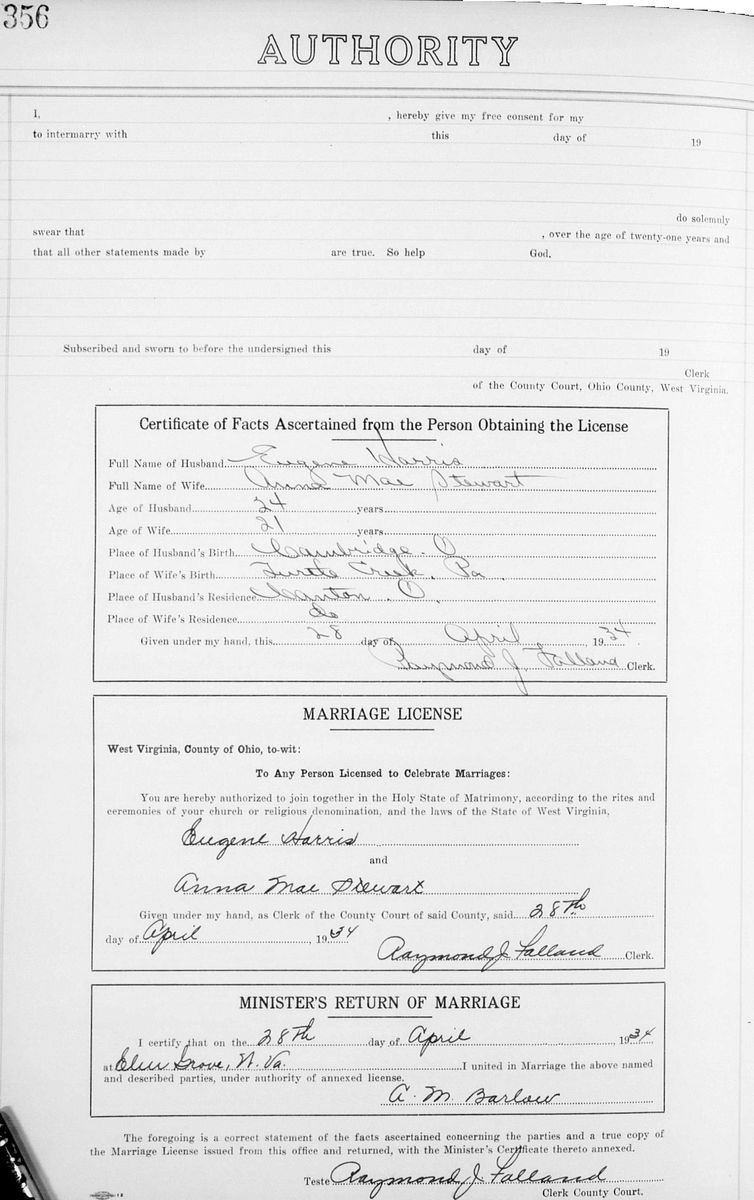 356
AUTHORITY
I, , hereby give my free consent for my
to intermarry with this day of 19
do solemnly
swear that , over the age of twenty-one years and
that all other statements made by are true. So help God.
Subscribed and sworn to before the undersigned this day of 19
Clerk
of the County Court, Ohio County, West Virginia.
Certificate of Facts Ascertained from the Person Obtaining the License
Full Name of Husband Eugene Harris
Full Name of Wife Anna Mae Stewart
Age of Husband 24 years
Age of Wife 21 years
Place of Husband's Birth Cambridge. O
Place of Wife's Birth Turtle Creek, Pa.
Place of Husband's Residence Canton, O.
Place of Wife's Residence do
Given under my hand, this 28 day of April, 1934.
Raymond J. Falland Clerk.
MARRIAGE LICENSE
West Virginia, County of Ohio, to-wit:
To Any Person Licensed to Celebrate Marriages:
You are hereby authorized to join together in the Holy State of Matrimony, according to the rites and
ceremonies of your church or religious denomination, and the laws of the State of West Virginia,
Eugene Harris
and
Anna Mae Stewart
Given under my hand, as Clerk of the County Court of said County, said 28th
day of April, 1934
Raymond J. Falland Clerk.
MINISTER'S RETURN OF MARRIAGE
I certify that on the 28th day of April, 1934
at Elm Grove, W. Va. I united in Marriage the above named
and described parties, under authority of annexed license.
A. M. Barlow
The foregoing is a correct statement of the facts ascertained concerning the parties and a true copy of
the Marriage License issued from this office and returned, with the Minister's Certificate thereto annexed.
Teste Raymond J. Falland
Clerk County Court.